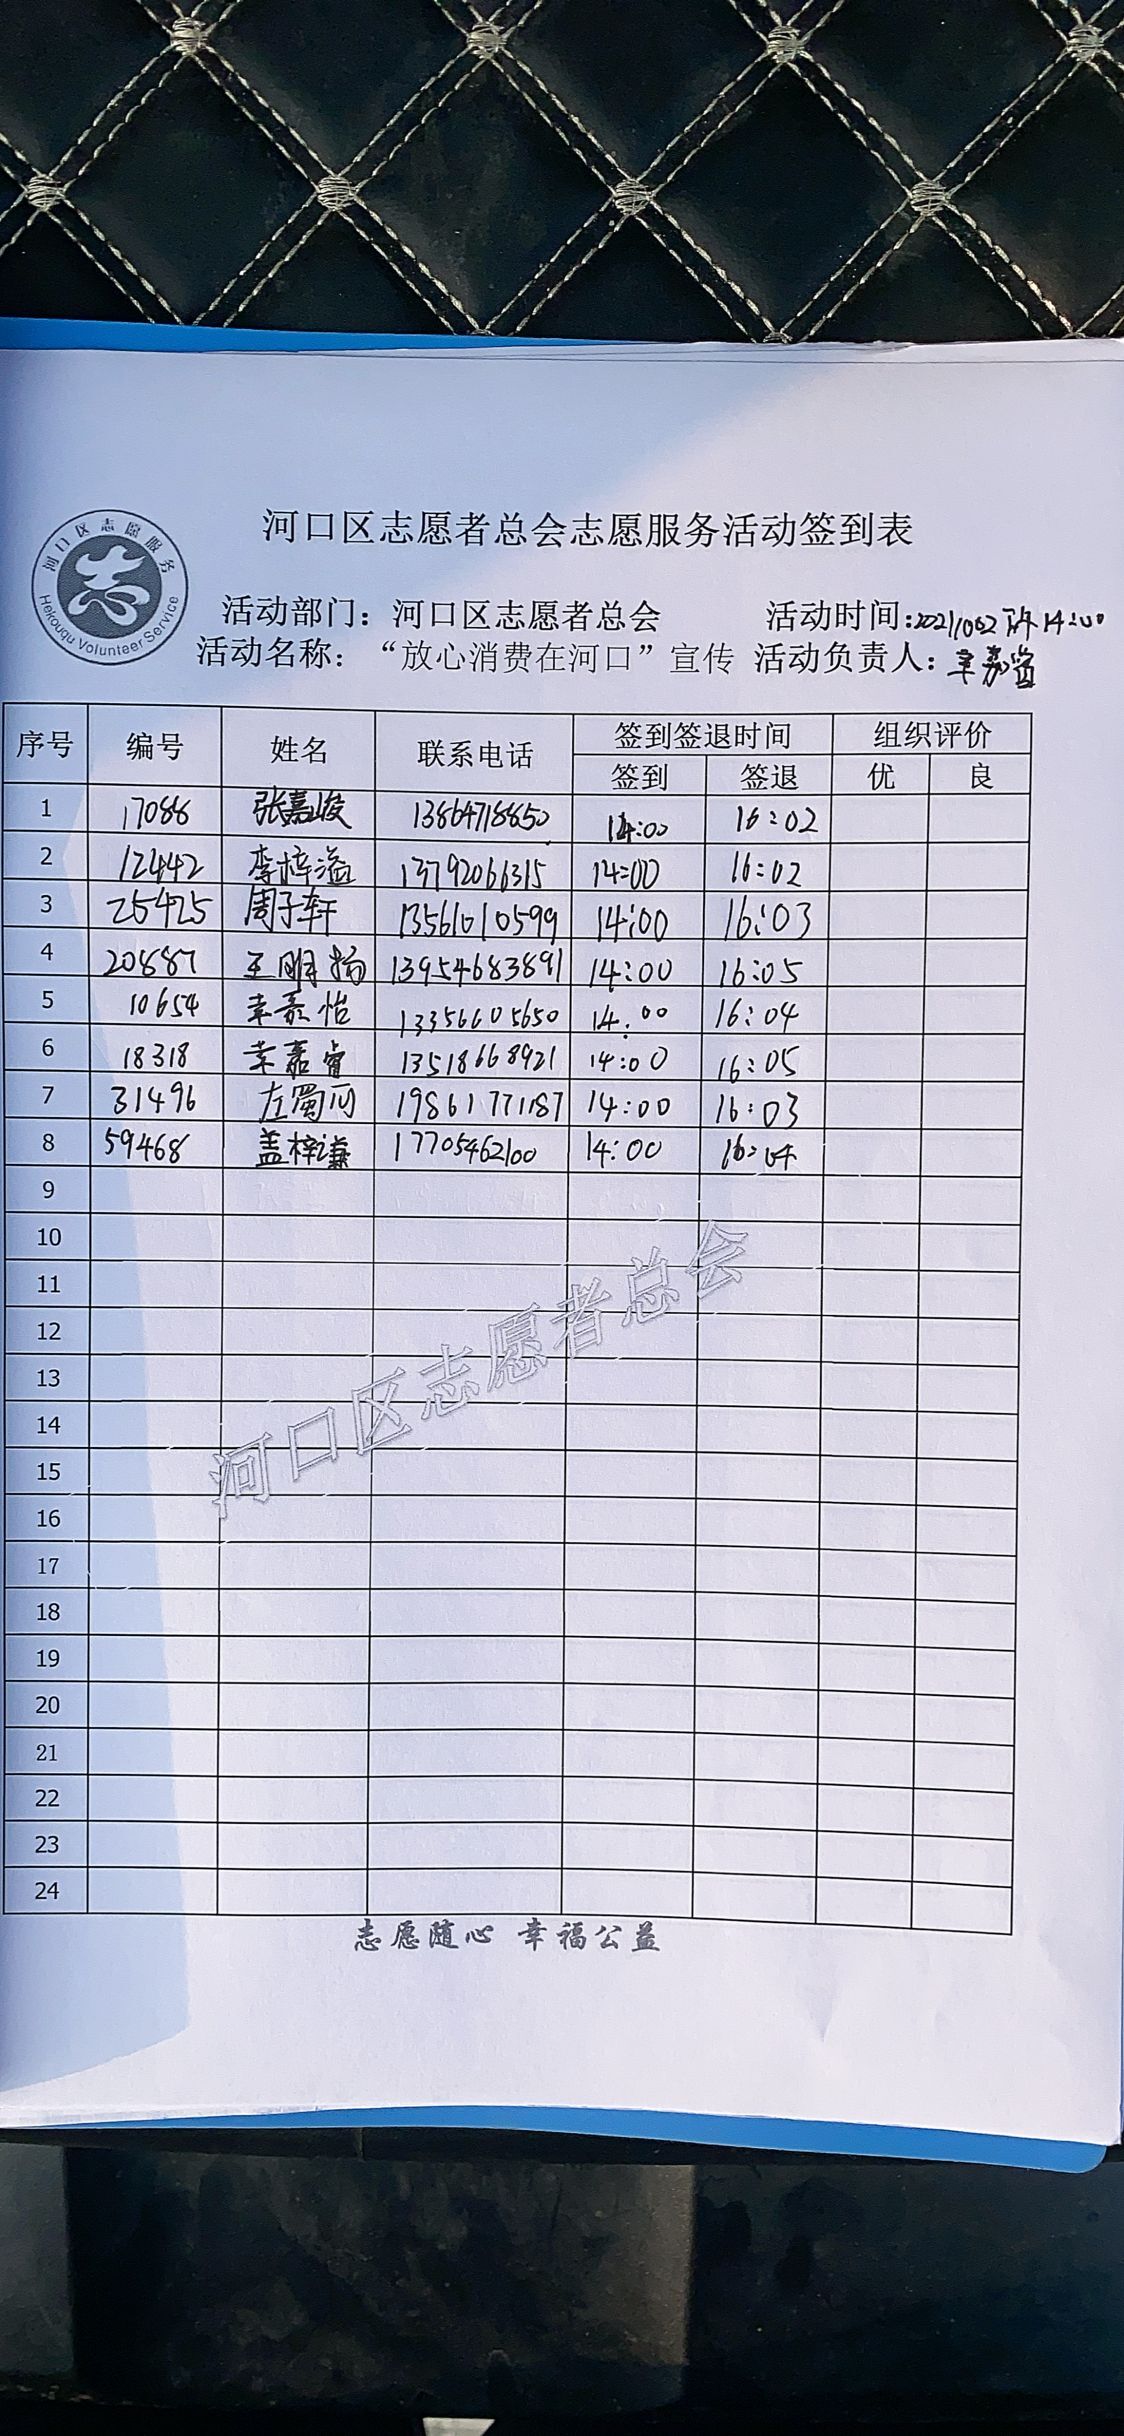 河口区志愿服务
Hekouqu Volunteer Service
河口区志愿者总会志愿服务活动签到表
活动部门：河口区志愿者总会 活动时间：20211002 14:00
活动名称：“放心消费在河口”宣传 活动负责人：
序号 编号 姓名 联系电话 签到签退时间 组织评价
签到 签退 优 良
1 17088 张嘉峻 13864718650 14:00 16:02
2 12442 李梓溢 13792066315 14:00 16:02
3 25425 周子轩 13561010599 14:00 16:03
4 20887 王明扬 13954683891 14:00 16:05
5 10654 怡 13356605650 14:00 16:04
6 18318 嘉睿 13518668921 14:00 16:05
7 31496 左蜀 19861771187 14:00 16:03
8 59468 盖梓谦 17705462100 14:00 16:04
9
10
11
12
13
14
15
16
17
18
19
20
21
22
23
24
河口区志愿者总会
志愿随心 幸福公益